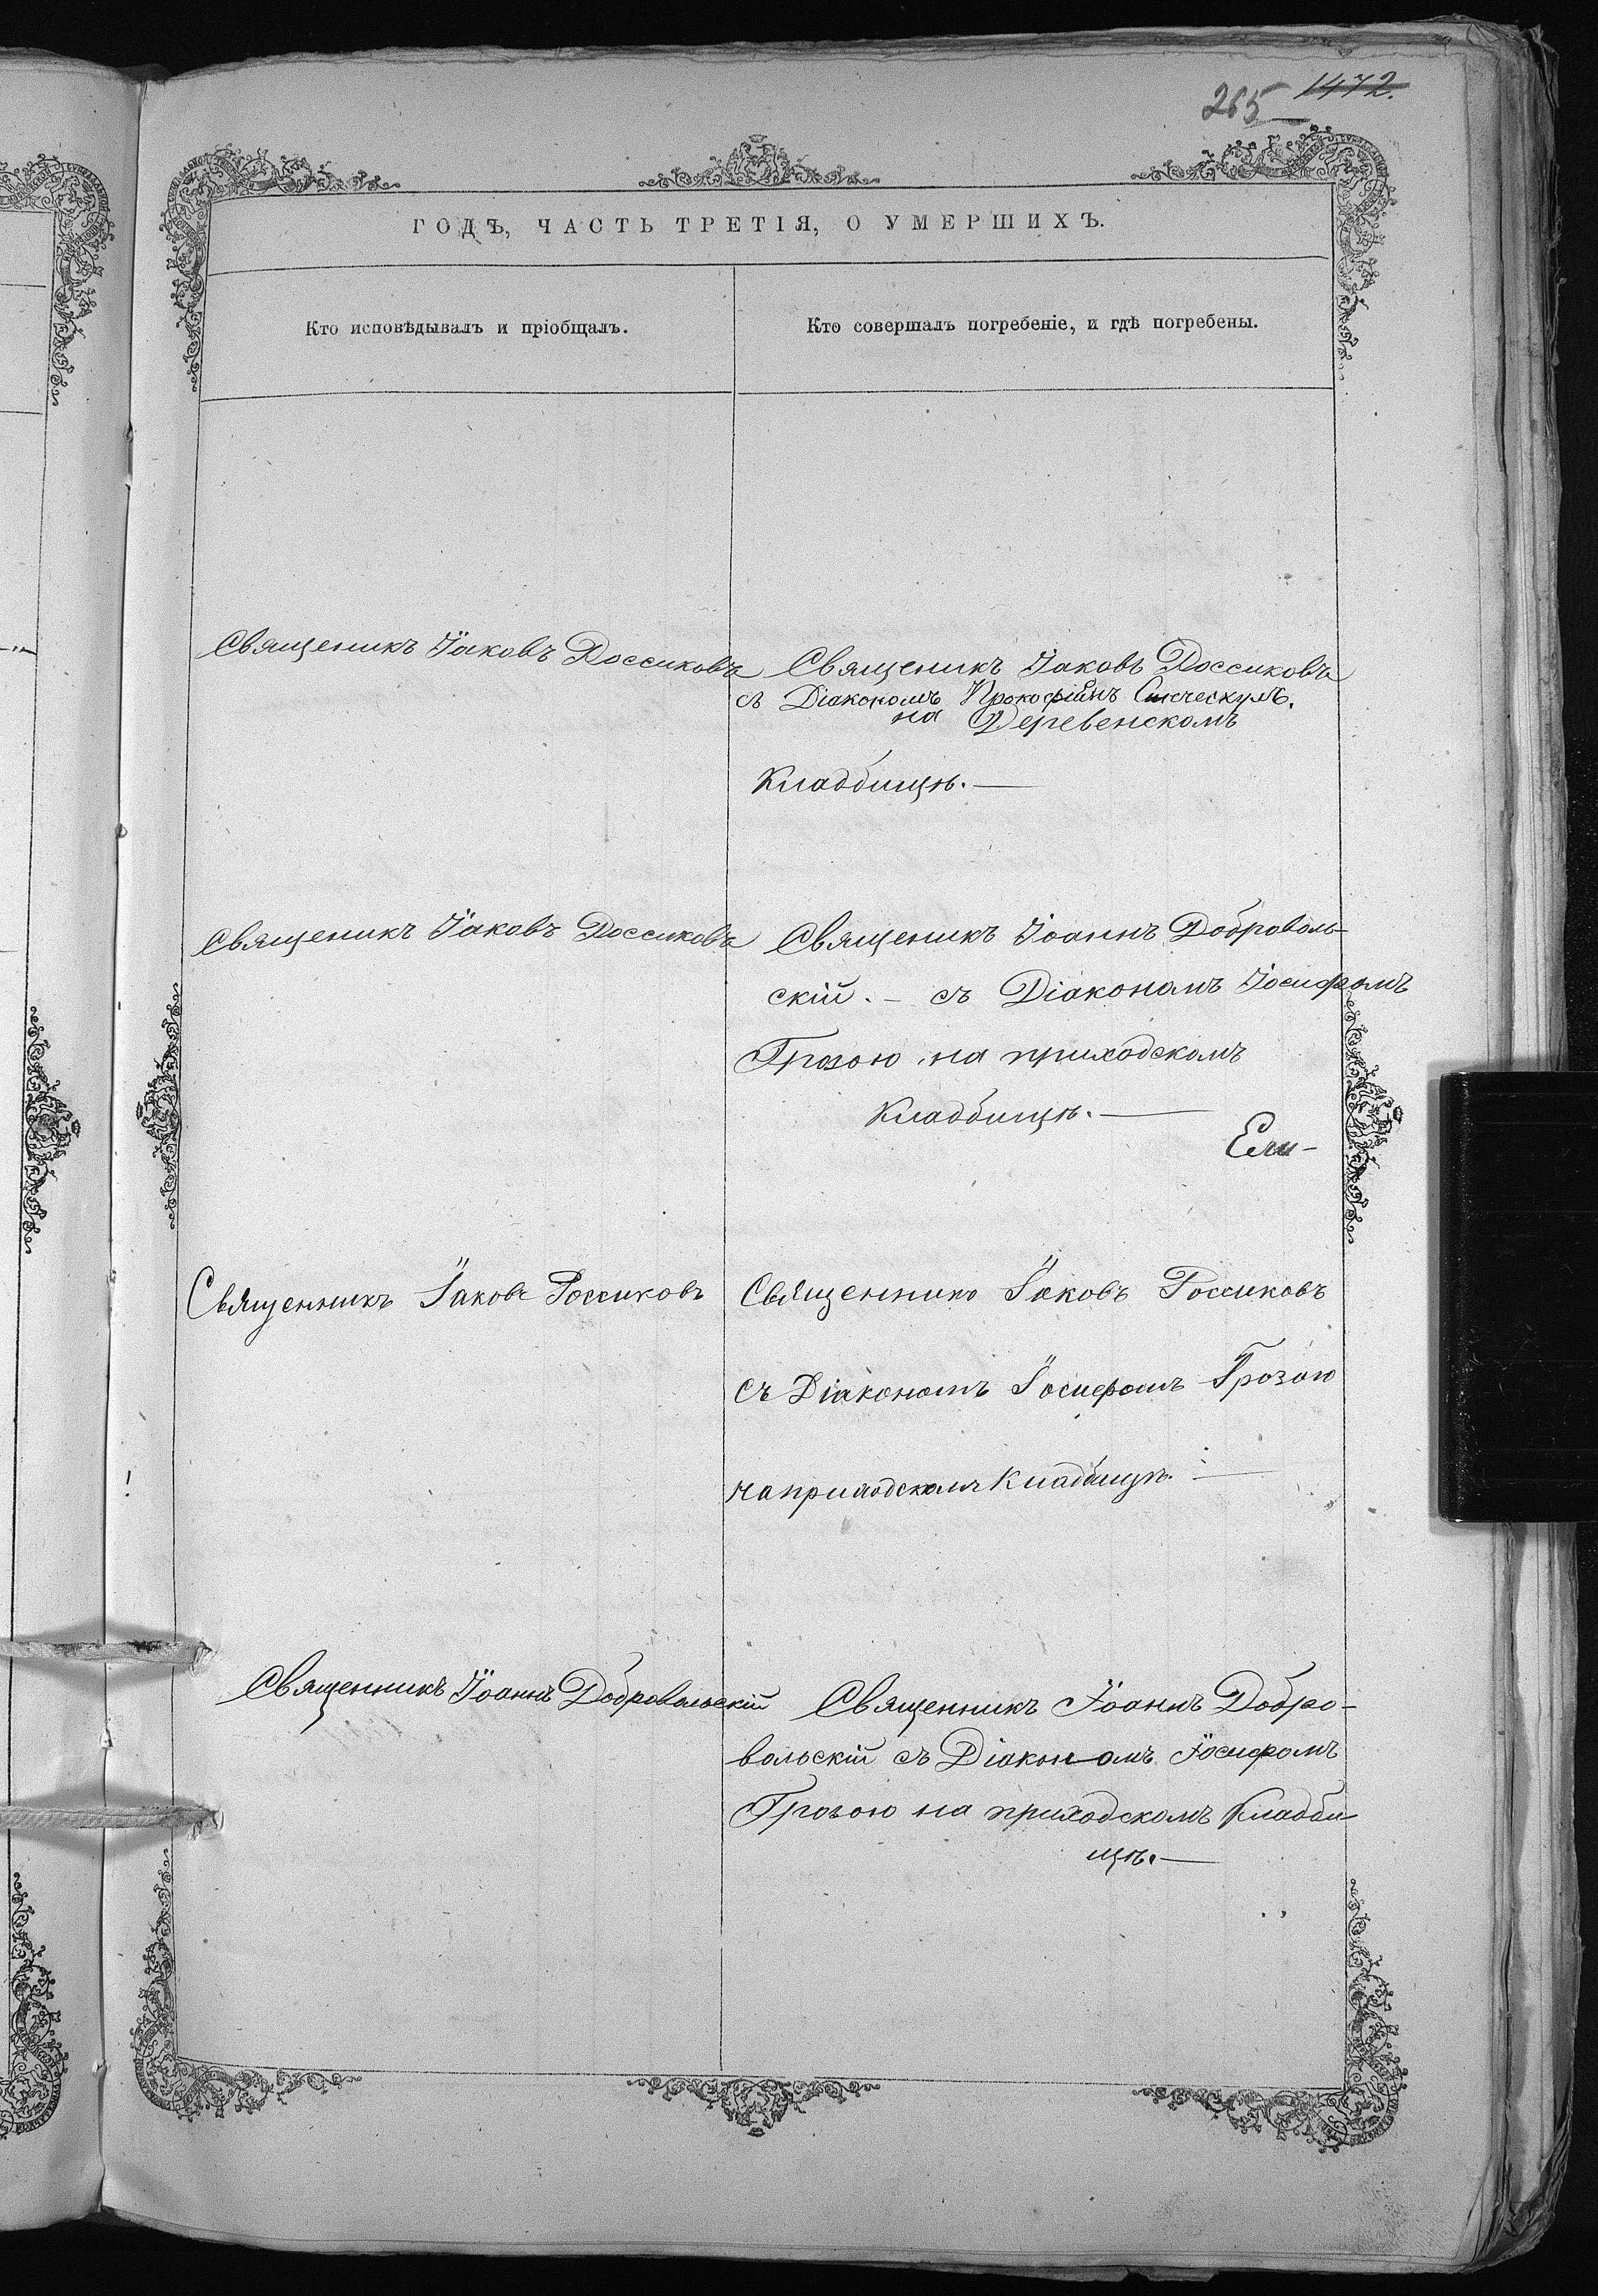 265 1472.
ГОДЪ, ЧАСТЬ ТРЕТІЯ, О УМЕРШИХЪ.
Кто исповѣдывалъ и пріобщалъ.
Кто совершалъ погребеніе, и гдѣ погребены.
Священикъ Іаковъ Россиковъ
Священикъ Іаковъ Россиковъ
съ Діакономъ
на Деревенскомъ
Кладбищѣ.—
Священикъ Іаковъ Россиковъ
Священикъ Іоаннъ Доброволь-
скій. – съ Діакономъ Іосифомъ
Грозою на приходскомъ
Кладбищѣ.—
Священникъ Іаковъ Россиковъ
Священникъ Іаковъ Россиковъ
съ Діакономъ Іосифомъ Грозою
на приходскомъ Кладбищѣ.—
Священникъ Іоаннъ Добровольскій
Священникъ Іоаннъ Добро-
вольскій съ Діакономъ Іосифомъ
Грозою на приходскомъ Кладби
щѣ.—